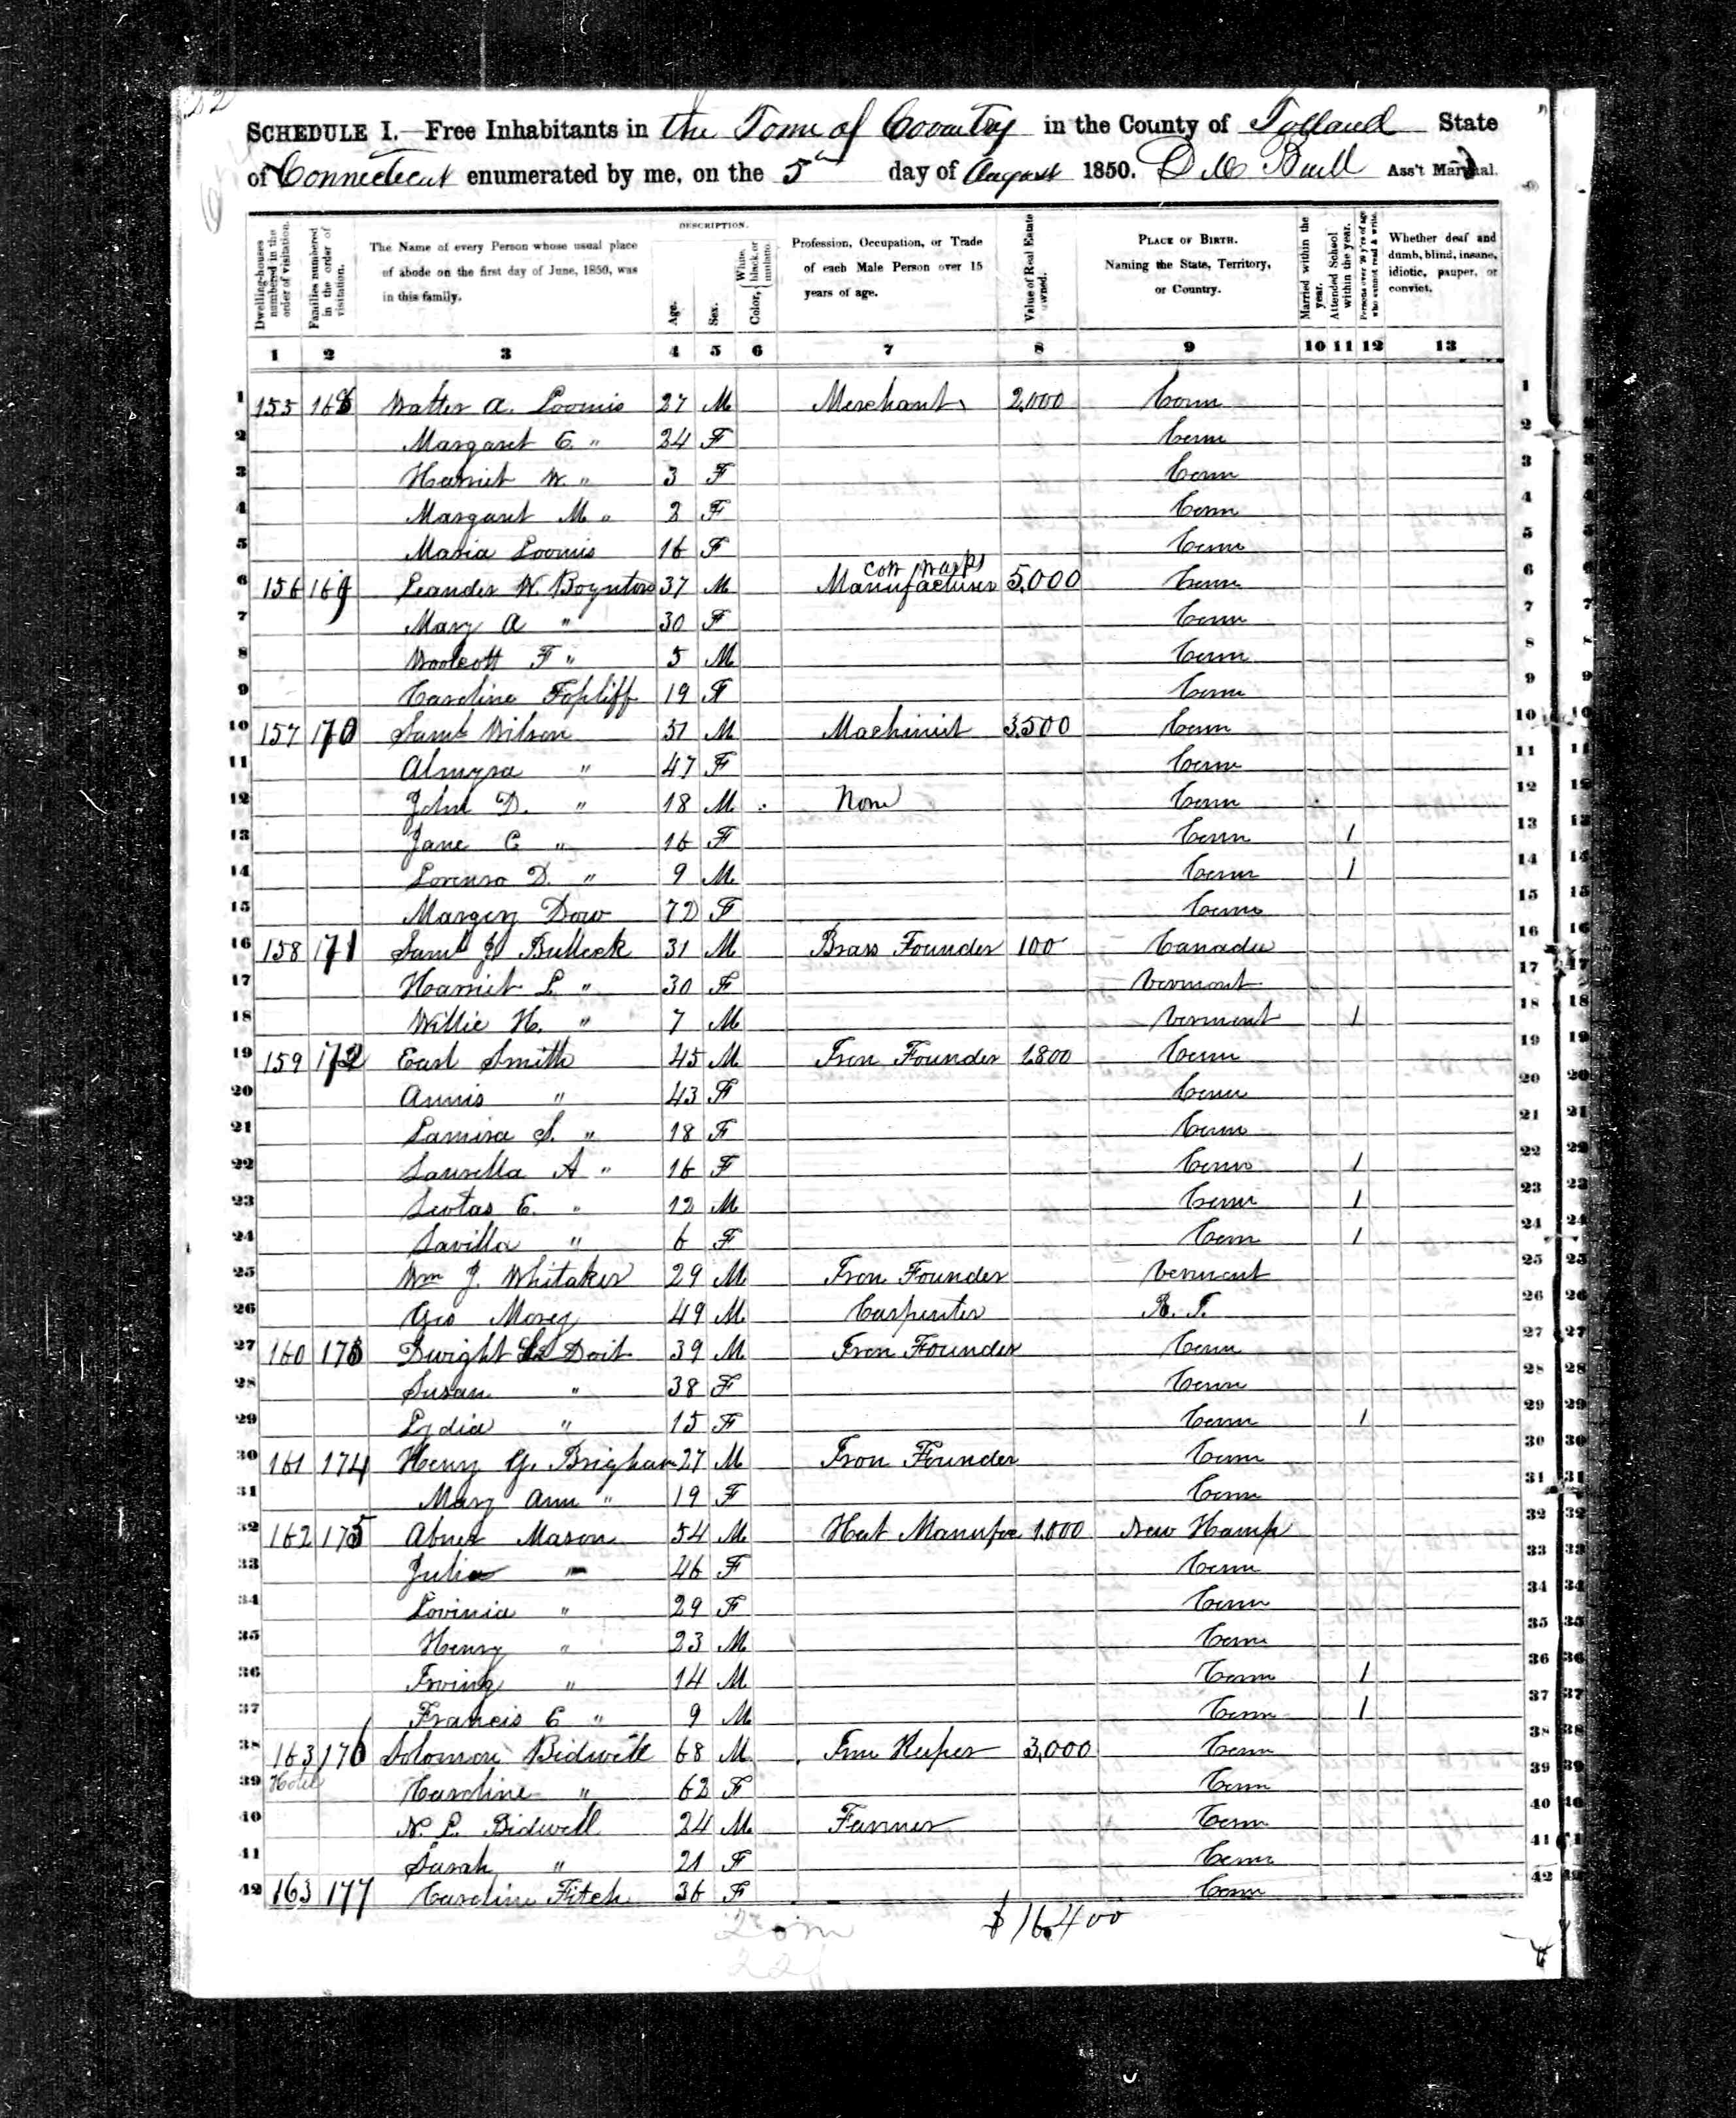 52
SCHEDULE I.—Free Inhabitants in the Town of Coventry in the County of Tolland State
of Connecticut enumerated by me, on the 5th day of August 1850. Buell Ass't Marshal.
Dwelling-houses numbered in the order of visitation.
Families numbered in the order of visitation.
The Name of every Person whose usual place of abode on the first day of June, 1850, was in this family.
DESCRIPTION.
Age.
Sex.
Color, White, black, or mulatto.
Profession, Occupation, or Trade of each Male Person over 15 years of age.
Value of Real Estate owned.
PLACE OF BIRTH. Naming the State, Territory, or Country.
Married within the year.
Attended School within the year.
Persons over 20 y'rs of age who cannot read & write.
Whether deaf and dumb, blind, insane, idiotic, pauper, or convict.
1 2 3 4 5 6 7 8 9 10 11 12 13
1 155 168 Walter A. Loomis 27 M Merchant 2,000 Conn 1
2 Margaret E. " 24 F Conn 2
3 Harriet W. " 3 F Conn 3
4 Margaret M " 2 F Conn 4
5 Maria Loomis 16 F Conn 5
6 156 169 Leander W. Boynton 37 M Manufacturer 5,000 Conn 6
7 Mary A " 30 F Conn 7
8 Woolcott F " 5 M Conn 8
9 Caroline Topliff 19 F Conn 9
10 157 170 Saml Wilson 51 M Machinist 3,500 Conn 10
11 Almyra " 47 F Conn 11
12 John D. " 18 M None Conn 12
13 Jane C " 16 F Conn 1 13
14 Lorenzo D. " 9 M Conn 1 14
15 Margery Dow 72 F Conn 15
16 158 171 Saml J Bullock 31 M Brass Founder 100 Canada 16
17 Harriet L " 30 F Vermont 17
18 Willie H. " 7 M Vermont 1 18
19 159 172 Earl Smith 45 M Iron Founder 1,800 Conn 19
20 Annis " 43 F Conn 20
21 Lamira S. " 18 F Conn 21
22 Laurella A " 16 F Conn 1 22
23 E. " 12 M Conn 1 23
24 Savilla " 6 F Conn 1 24
25 Wm J. Whitaker 29 M Iron Founder Vermont 25
26 Geo Morey 49 M Carpenter R. I. 26
27 160 173 Dwight Doit 39 M Iron Founder Conn 27
28 Susan " 38 F Conn 28
29 Lydia " 15 F Conn 1 29
30 161 174 Henry G. Brigham 27 M Iron Founder Conn 30
31 Mary Ann " 19 F Conn 31
32 162 175 Abner Mason 54 M Hat Manufac 1,000 New Hamp 32
33 Julia " 46 F Conn 33
34 Lovinia " 29 F Conn 34
35 Henry " 23 M Conn 35
36 Irving " 14 M Conn 1 36
37 Francis E " 9 M Conn 1 37
38 163 176 Solomon Bidwell 68 M Inn Keeper 3,000 Conn 38
39 Hotel Caroline " 62 F Conn 39
40 N. L. Bidwell 24 M Farmer Conn 40
41 Sarah " 21 F Conn 41
42 163 177 Caroline Fitch 36 F Conn 42
$16,400
20 m
22 f